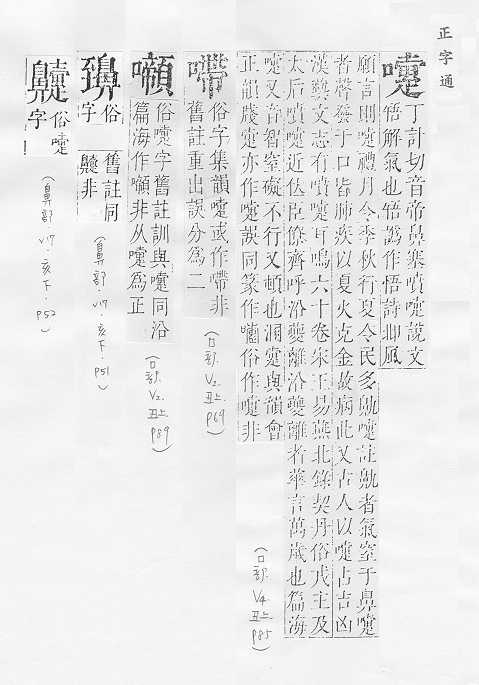 正字通
嚏
丁計切音帝鼻塞噴嚏說文
悟解氣也悟譌作悟詩邶風
願言則嚏禮月令季秋行夏令民多鼽嚏註鼽者氣窒于鼻嚏
者聲發于口皆肺疾以夏火克金故病此又古人以嚏占吉凶
漢藝文志有噴嚏耳鳴六十卷宋王易燕北錄契丹俗戎主及
太后噴嚏近臣僚齊呼沿夔離沿夔離者華言萬歲也篇海
嚏又音智窒礙不行又頓也與韻會
正韻牋嚏亦作嚏誤同篆作俗作嚏非
(口部. V4. 丑上. P85)
俗字集韻嚏或作非
舊註重出誤分為二
(口部. V2. 丑上. P69)
俗嚏字舊註訓與嚏同沿
篇海作非从嚏為正
(口部. V2. 丑上. P89)
俗字
舊註同
非
(鼻部. V17. 亥下. P51)
俗嚏字
(鼻部. V17. 亥下. P52)